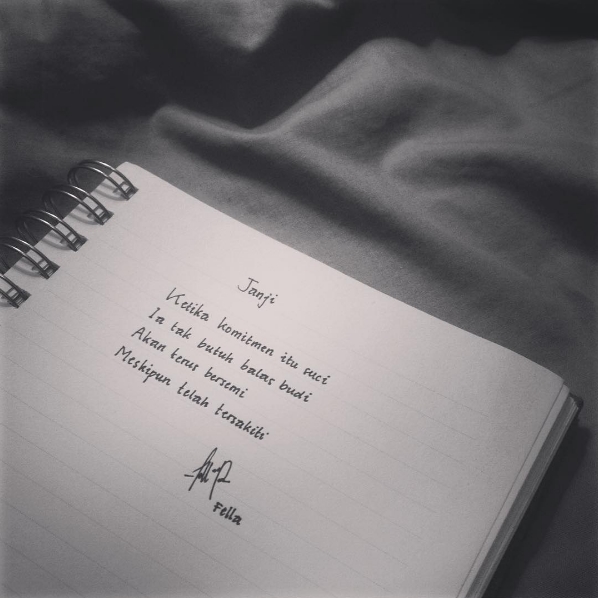 Janji
Ketika komitmen itu suci
Ia tak butuh balas budi
Akan terus bersemi
Meskipun telah tersakiti
Fella